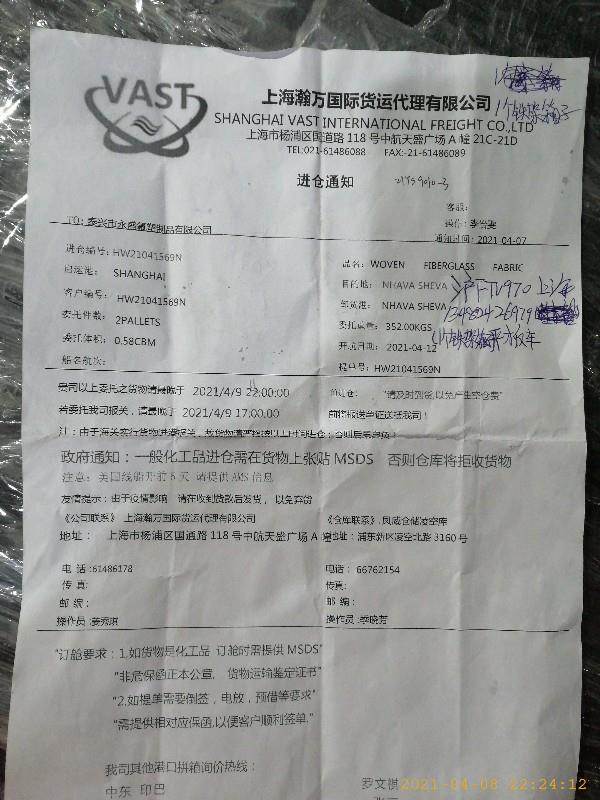 VAST
上海瀚万国际货运代理有限公司
SHANGHAI VAST INTERNATIONAL FREIGHT CO.,LTD
上海市杨浦区国道路 118 号中航天盛广场 A 幢 21C-21D
TEL:021-61486088 FAX:-21-61486089
进仓通知
客服:
TO: 泰兴市永盛氟塑制品有限公司
操作: 李尝雯
通知时间: 2021-04-07
进仓编号: HW21041569N
启运港: SHANGHAI
客户编号: HW21041569N
委托件数: 2PALLETS
委托体积: 0.58CBM
船名航次:
品名: WOVEN FIBERGLASS FABRIC
目的地: NHAVA SHEVA
卸货港: NHAVA SHEVA
沪FTV970
委托重量: 352.00KGS
开航日期: 2021-04-12
提单号: HW21041569N
贵司以上委托之货物请最晚于 2021/4/9 22:00:00
前进仓: "请及时到货,以免产生空仓费"
若委托我司报关,请最晚于 2021/4/9 17:00:00
前将报送单证送抵我司!
政府通知:一般化工品进仓需在货物上张贴 MSDS 否则仓库将拒收货物
注意: 美国线船开前 6 天 请提供 AMS 信息
友情提示:由于疫情影响 请在收到货款后发货,以免弃货
《公司联系》上海瀚万国际货运代理有限公司
《仓库联系》,凤威仓储凌空库
地址: 上海市杨浦区国通路 118 号中航天盛广场 A
地址: 浦东新区凌空北路 3160 号
电 话:61486178
电话: 66762154
传 真:
传真:
邮 编:
邮 编:
操作员:姜秀琪
操作员:季晓芳
"订舱要求:1.如货物是化工品 订舱时需提供 MSDS"
"非危保函正本公章, 货物运输鉴定证书"
"2.如提单需要倒签,电放,预借等要求"
"需提供相对应保函,以便客户顺利签单."
我司其他港口拼箱询价热线:
中东 印巴
罗文祺
2021-04-08 22:24:12